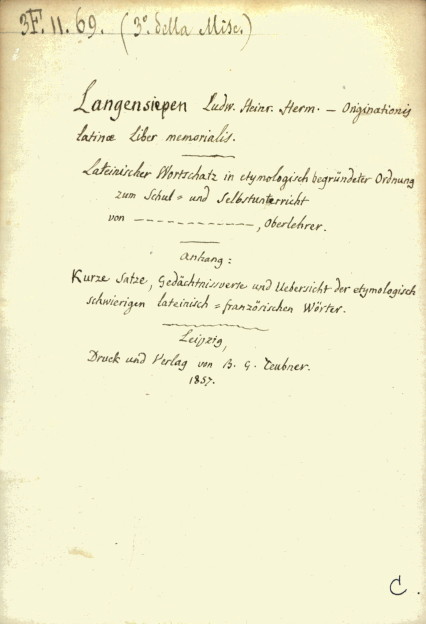 3F. 11. 69. (3º della Misc.)
Langensiepen Ludw. Heinr. Herm. — Originationis
latinæ liber memorialis.
Lateinischer Wortschatz in etymologisch begründeter Ordnung
zum Schul = und Selbstunterricht
von – – – – – – – – – – –, Oberlehrer.
Anhang:
Kurze Sätze, Gedächtnissverse und Uebersicht der etymologisch
schwierigen lateinisch = französischen Wörter.
Leipzig,
Druck und Verlag von B. G. Teubner.
1857.
C.